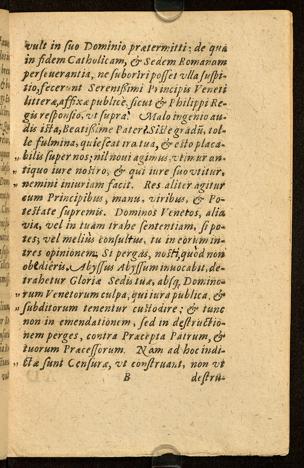 vult in suo Dominio prætermitti; de qua
in fidem Catholicam, & Sedem Romanam
perseverantia, ne suboriri posset ulla suspi-
tio, fecerunt Serenissimi Principis Veneti
litteræ, affixæ publicè, sicut & Philippi Re-
gis responsio, vt supra. Malo ingento au-
dis ista, Beatissime Pater? Siste gradũ, tol-
le fulmina, quiescat ira tua, & esto placa-
bilis super nos; nil noui agimus, vtimur an-
tiquo iure nostro, & qui iure suo vtitur,
nemini iniuriam facit. Res aliter agitur
cum Principibus, manu, viribus, & Po-
testate supremis. Dominos Venetos, alia
via, vel in tuam trahe sententiam, si po-
tes; vel meliùs consultus, tu in eorum in-
tres opinionem. Si pergás, nosti, quòd non
obedieris, Abyssus Abyssum inuocabit, de-
trahetur Gloria Sedis tuæ, absq, Domino-
rum Venetorum culpa, qui iura publica, &
subditorum tenentur custodire; & tunc
non in emendationem, sed in destructio-
nem perges, contra Præcepta Patrum, &
tuorum Præcessorum. Nam ad hoc indi-
ctæ sunt Censuræ, vt construant, non vt
B destru-